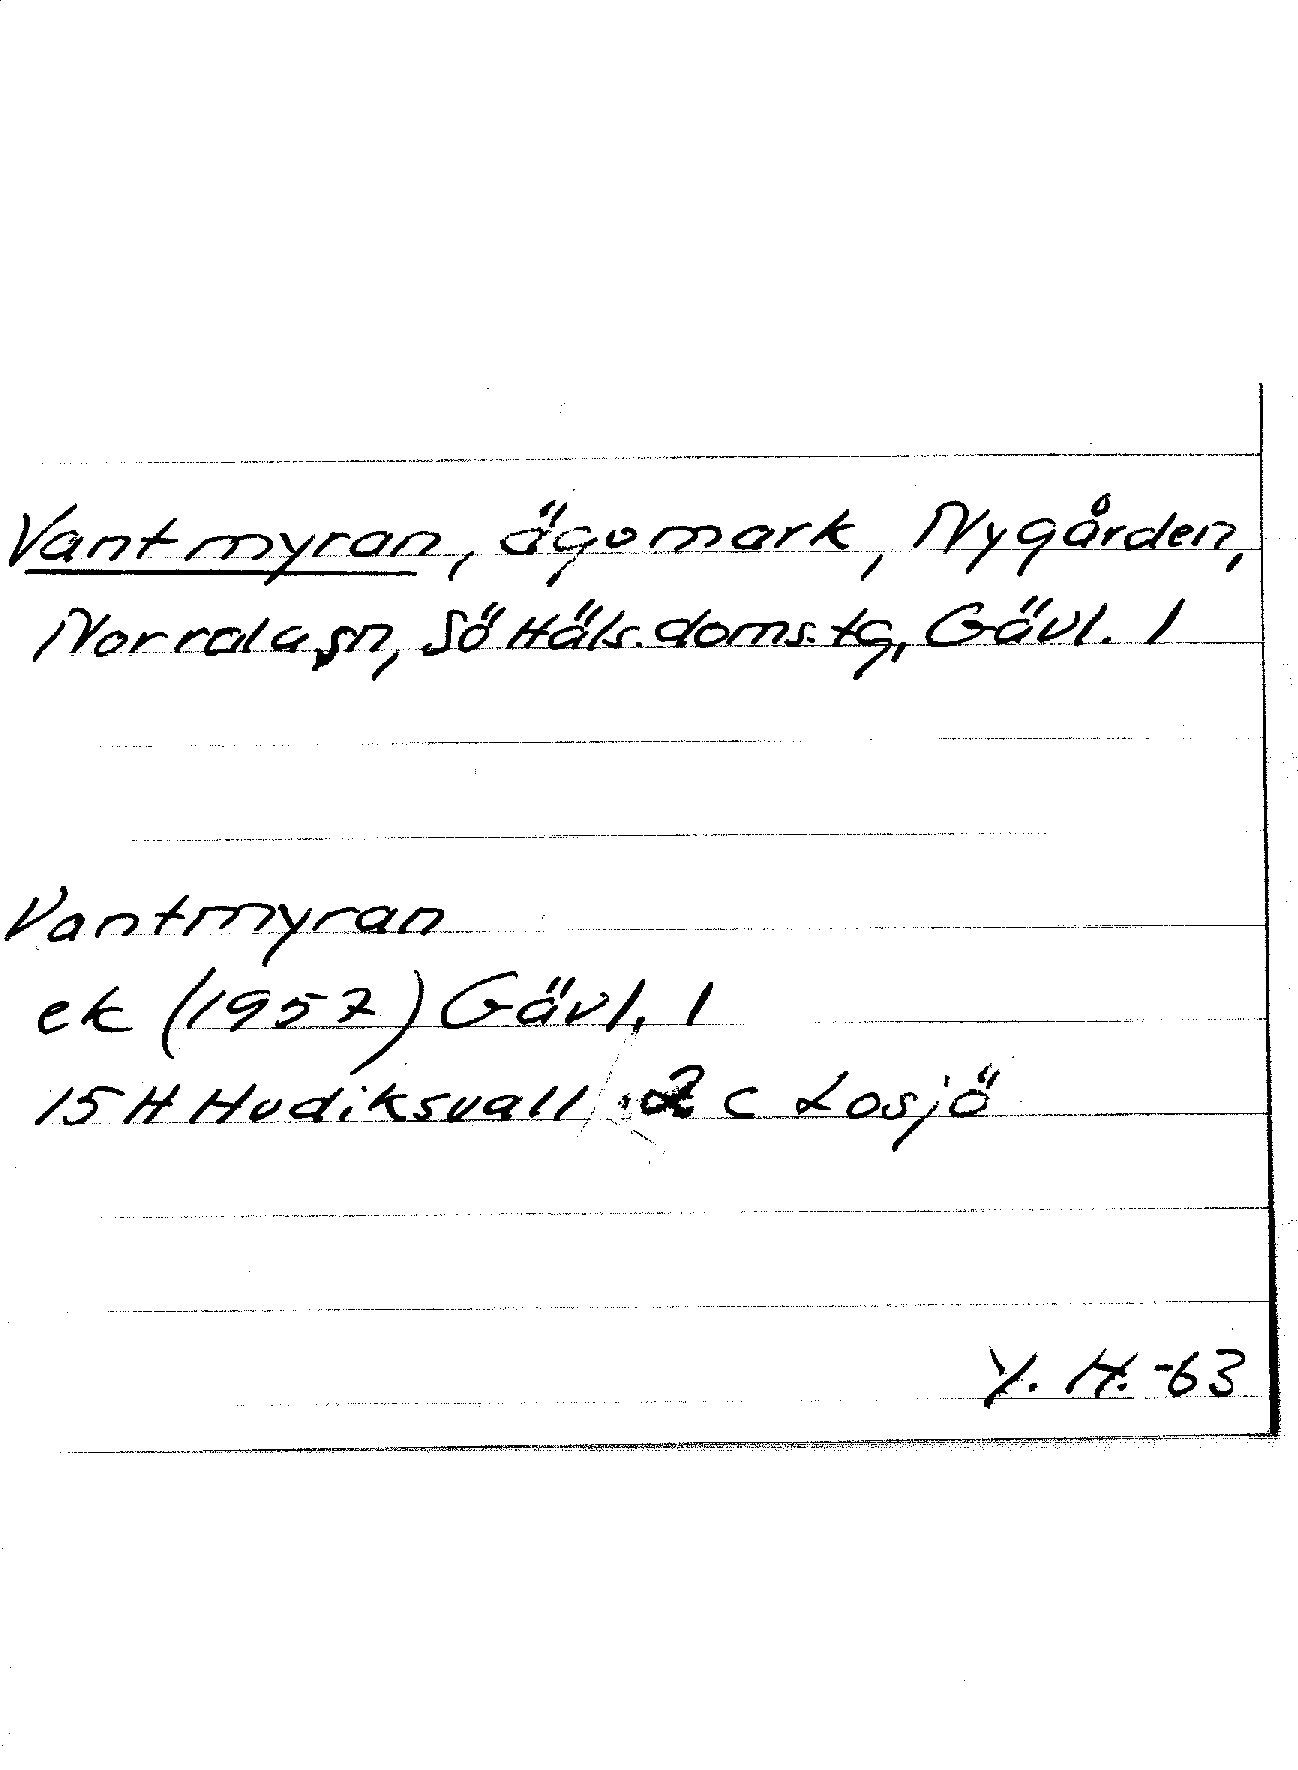 Vantmyran, ägomark, Nygården,
Norrala sn, Sö Häls. doms. tg, Gävl. l
Vantmyran
ek (1957) Gävl. l
15 H Hudiksvall 2 c Losjö
Y. H. -63